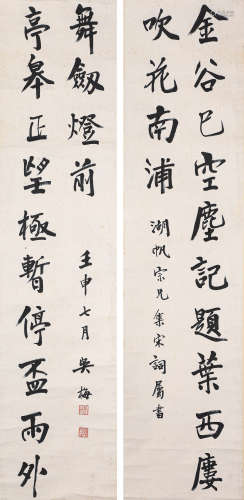 金谷已空塵記題葉西廔
吹花南浦
湖帆宗兄集宋詞屬書
亭皋正望極暫停盃雨外
舞劔燈前
壬申七月吳梅